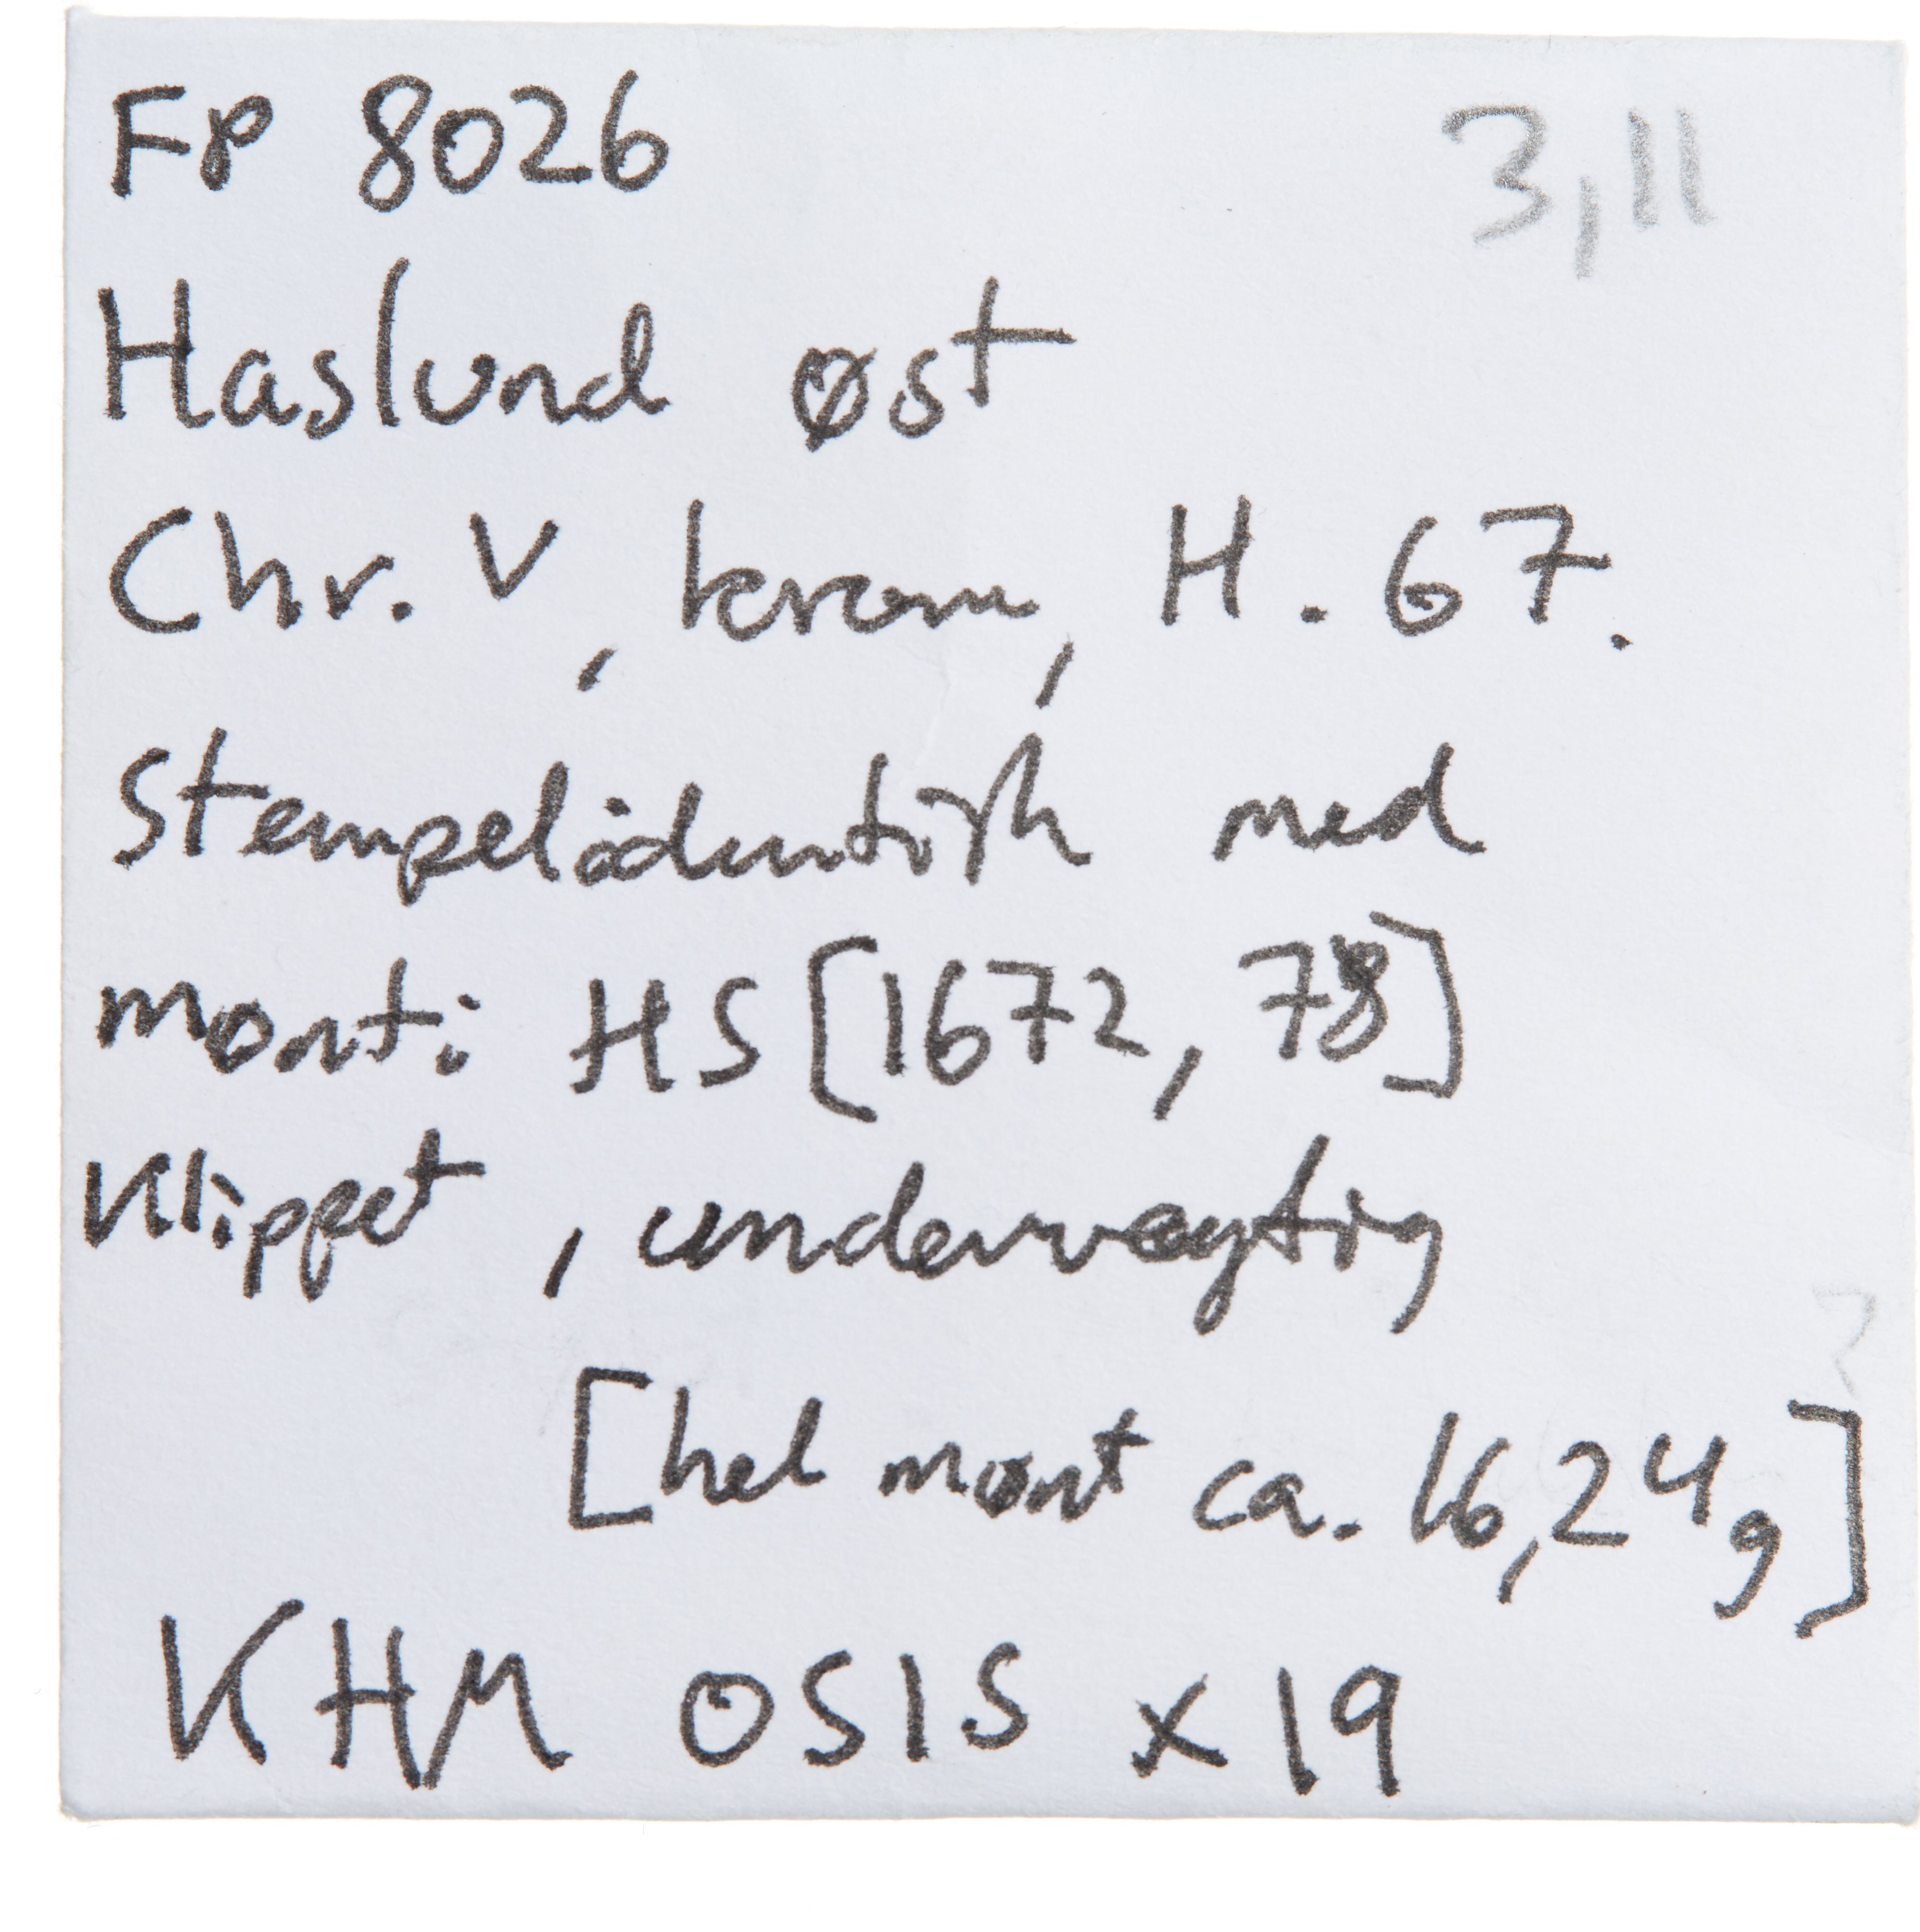 FP 8026 3,11
Haslund øst
Chr. V, krone, H. 67.
Stempelidentisk med
mønt i HS [1672, 78]
Klippet, undervægtig
[hel mønt ca. 16,24 g]
KHM OSIS x19